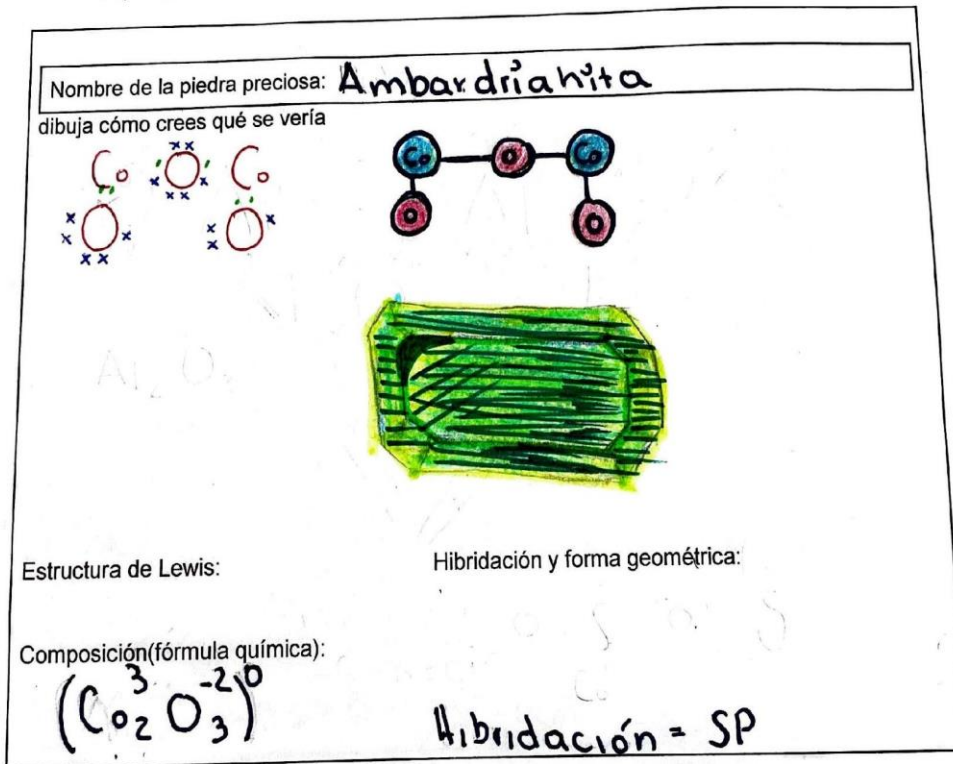 Nombre de la piedra preciosa: Ambardrianita
dibuja cómo crees qué se vería
Co O Co
O O
Co O Co
O O
Estructura de Lewis:
Hibridación y forma geométrica:
Composición(fórmula química):
(Co₂³ O₃⁻²)⁰
Hibridación = SP